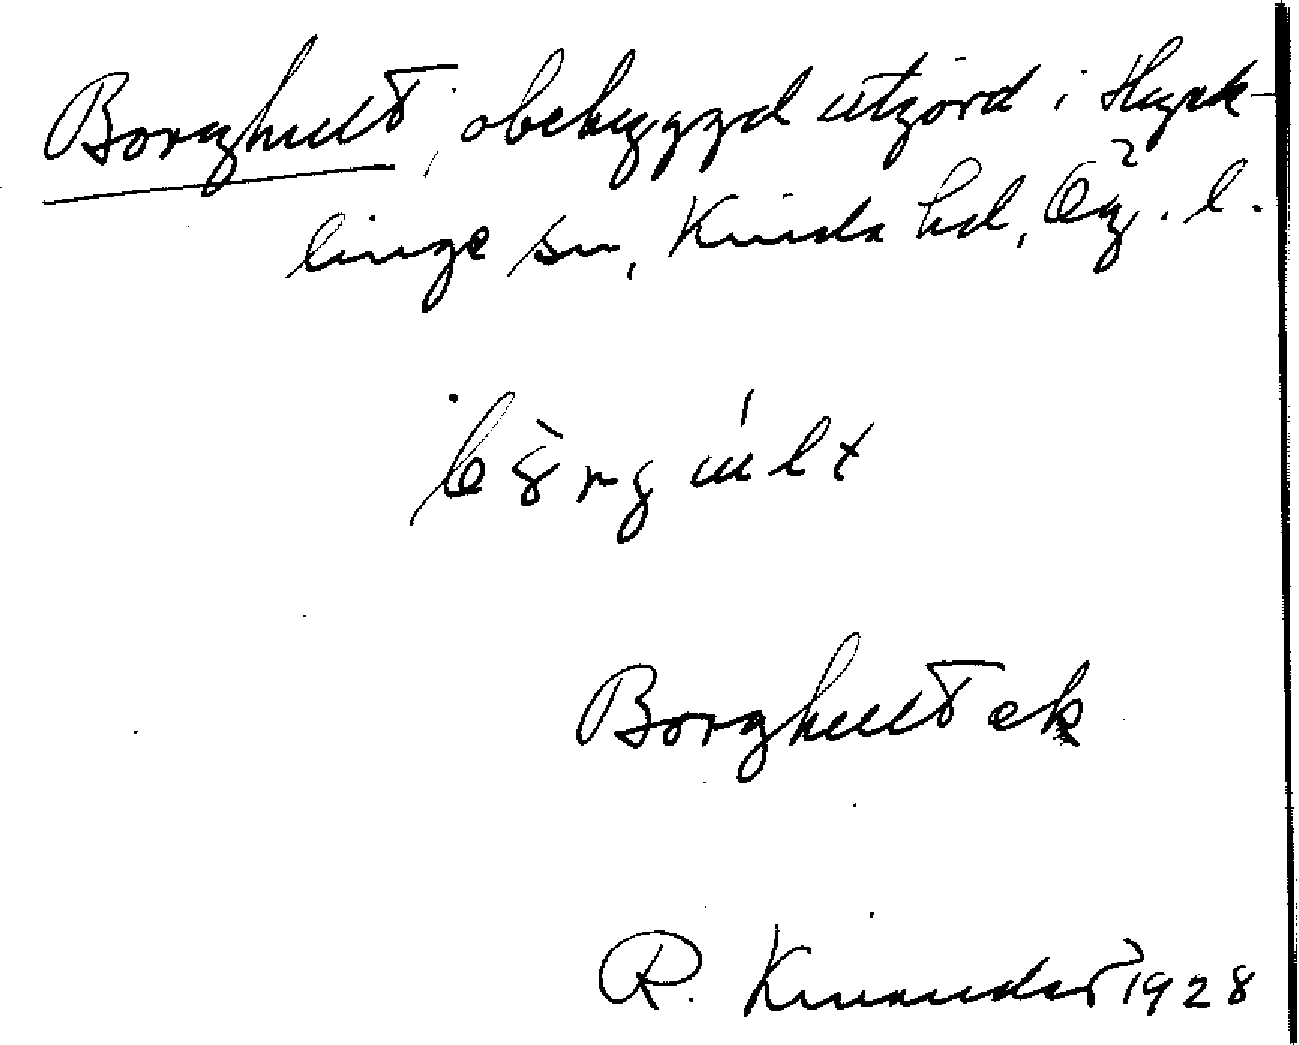 Borghult, obebyggd utjord i Hyck-
linge sn, Kinda hd, Ög. l.
Borghult ek
R. Kinander 1928